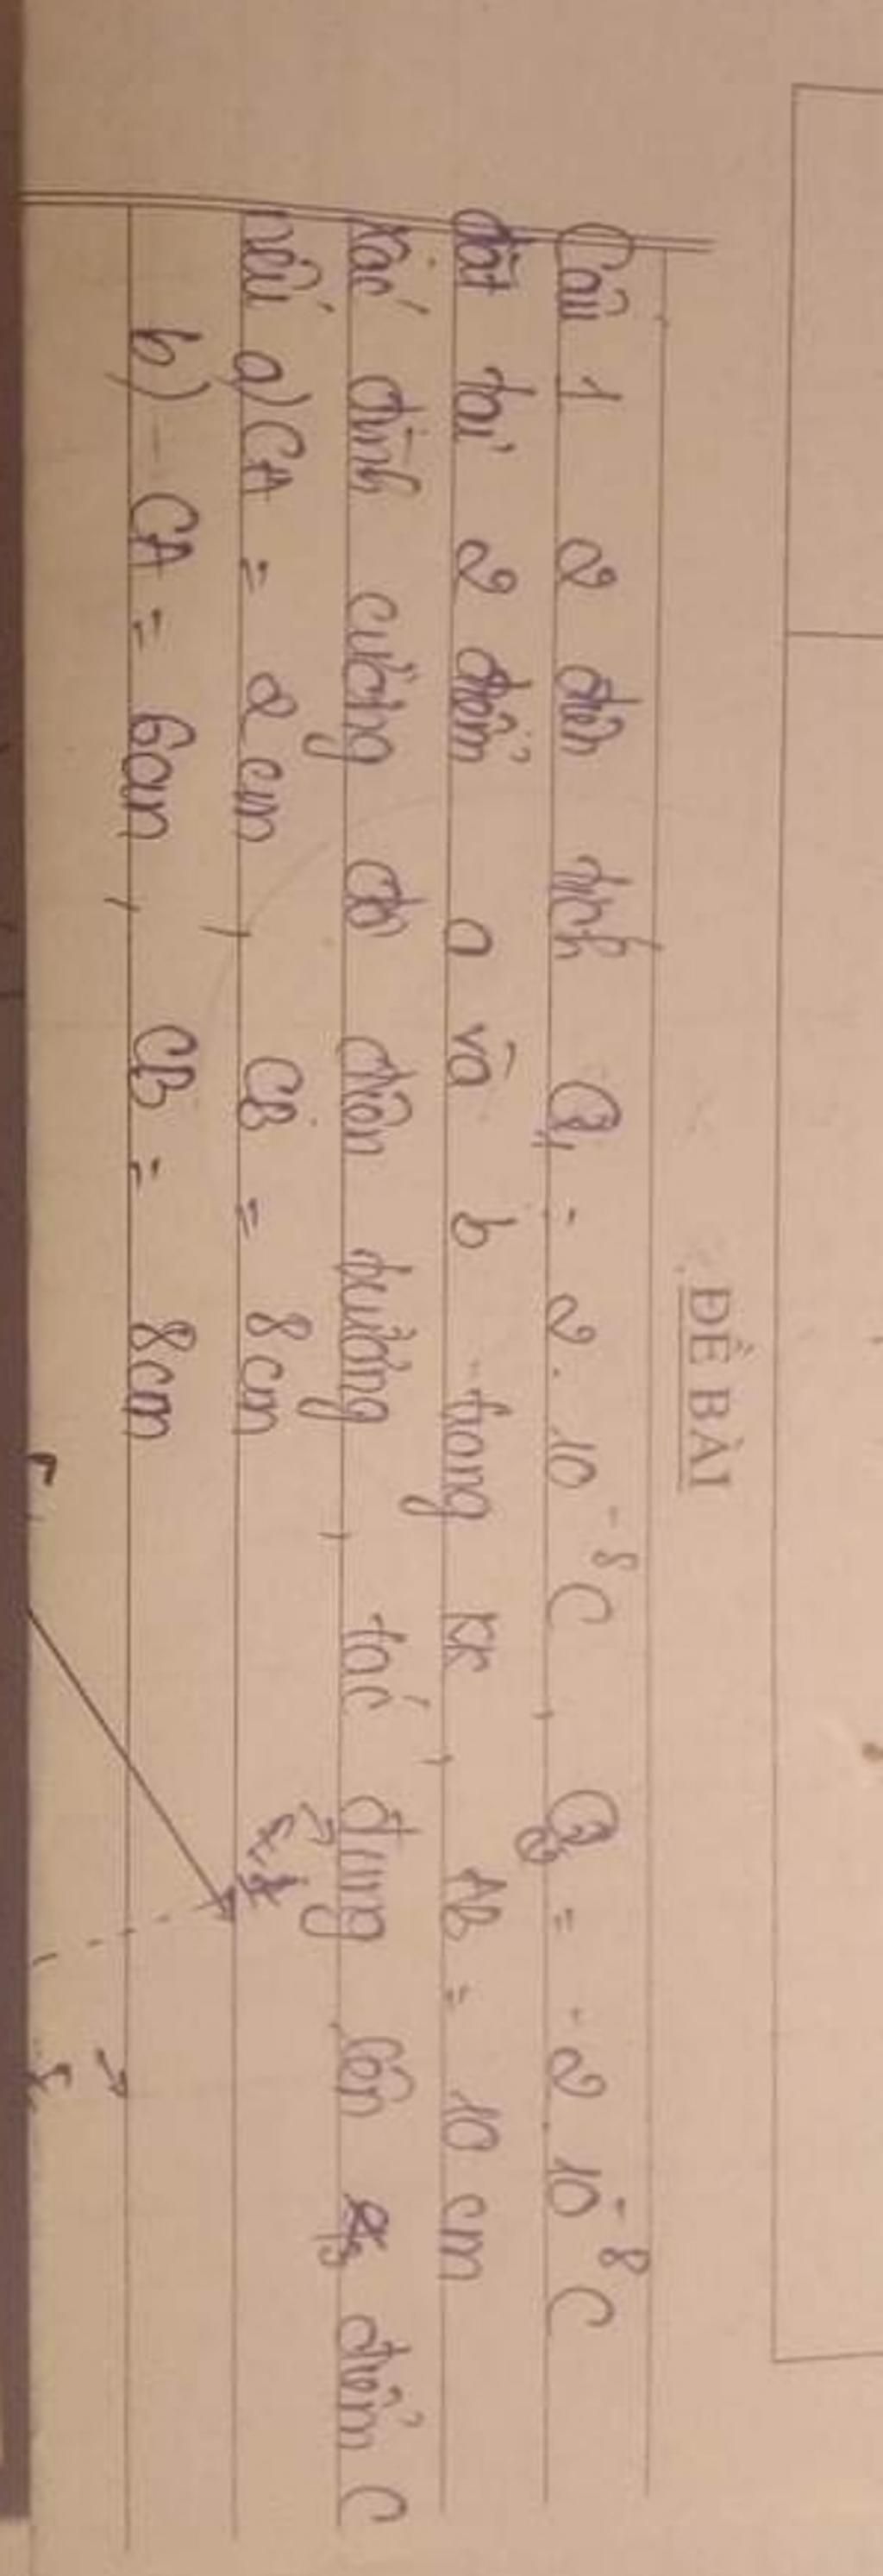 ĐỀ BÀI
Câu 1 2 điện tích Q₁ = 2.10⁻⁸C, Q₂ = -2.10⁻⁸C
đặt tại 2 điểm a và b trong kk, AB = 10 cm
xác định cường độ điện trường, tác dụng lên điểm C
nếu a) CA = 2 cm, CB = 8 cm
b) CA = 6cm, CB = 8cm